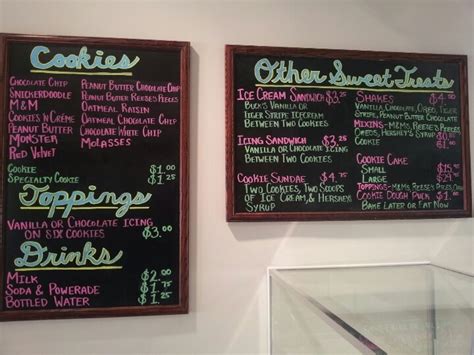 Cookies
Chocolate Chip
Snickerdoodle
M&M
Cookies 'n Crème
Peanut Butter
Monster
Red Velvet
Peanut Butter Chocolate Chip
Peanut Butter Reese's Pieces
Oatmeal Raisin
Oatmeal Chocolate Chip
Chocolate White Chip
Molasses
Cookie $1.00
Specialty Cookie $1.
Toppings
Vanilla or Chocolate Icing
on Six Cookies $3.00
Drinks
Milk $2.00
Soda & Powerade $1.75
Bottled Water $1.25
Other Sweet Treats
Ice Cream Sandwich $3.
Buck's Vanilla or
Tiger Stripe Icecream
Between Two Cookies
Icing Sandwich $3.25
Vanilla or Chocolate Icing
Between Two Cookies
Cookie Sundae $4.
Two Cookies, Two Scoops
of Ice Cream, & Hershey's
Syrup
Shakes $4.00
Vanilla, Chocolate, Oreo, Tiger
Stripe, Peanut Butter Chocolate
Mixins- M&Ms, Reese's
Oreos, Hershey's
Cookie Cake
Small
Large
Toppings- M&Ms, Reese's Pieces,
Cookie Dough Puck $1.
Bake Later or Eat Now